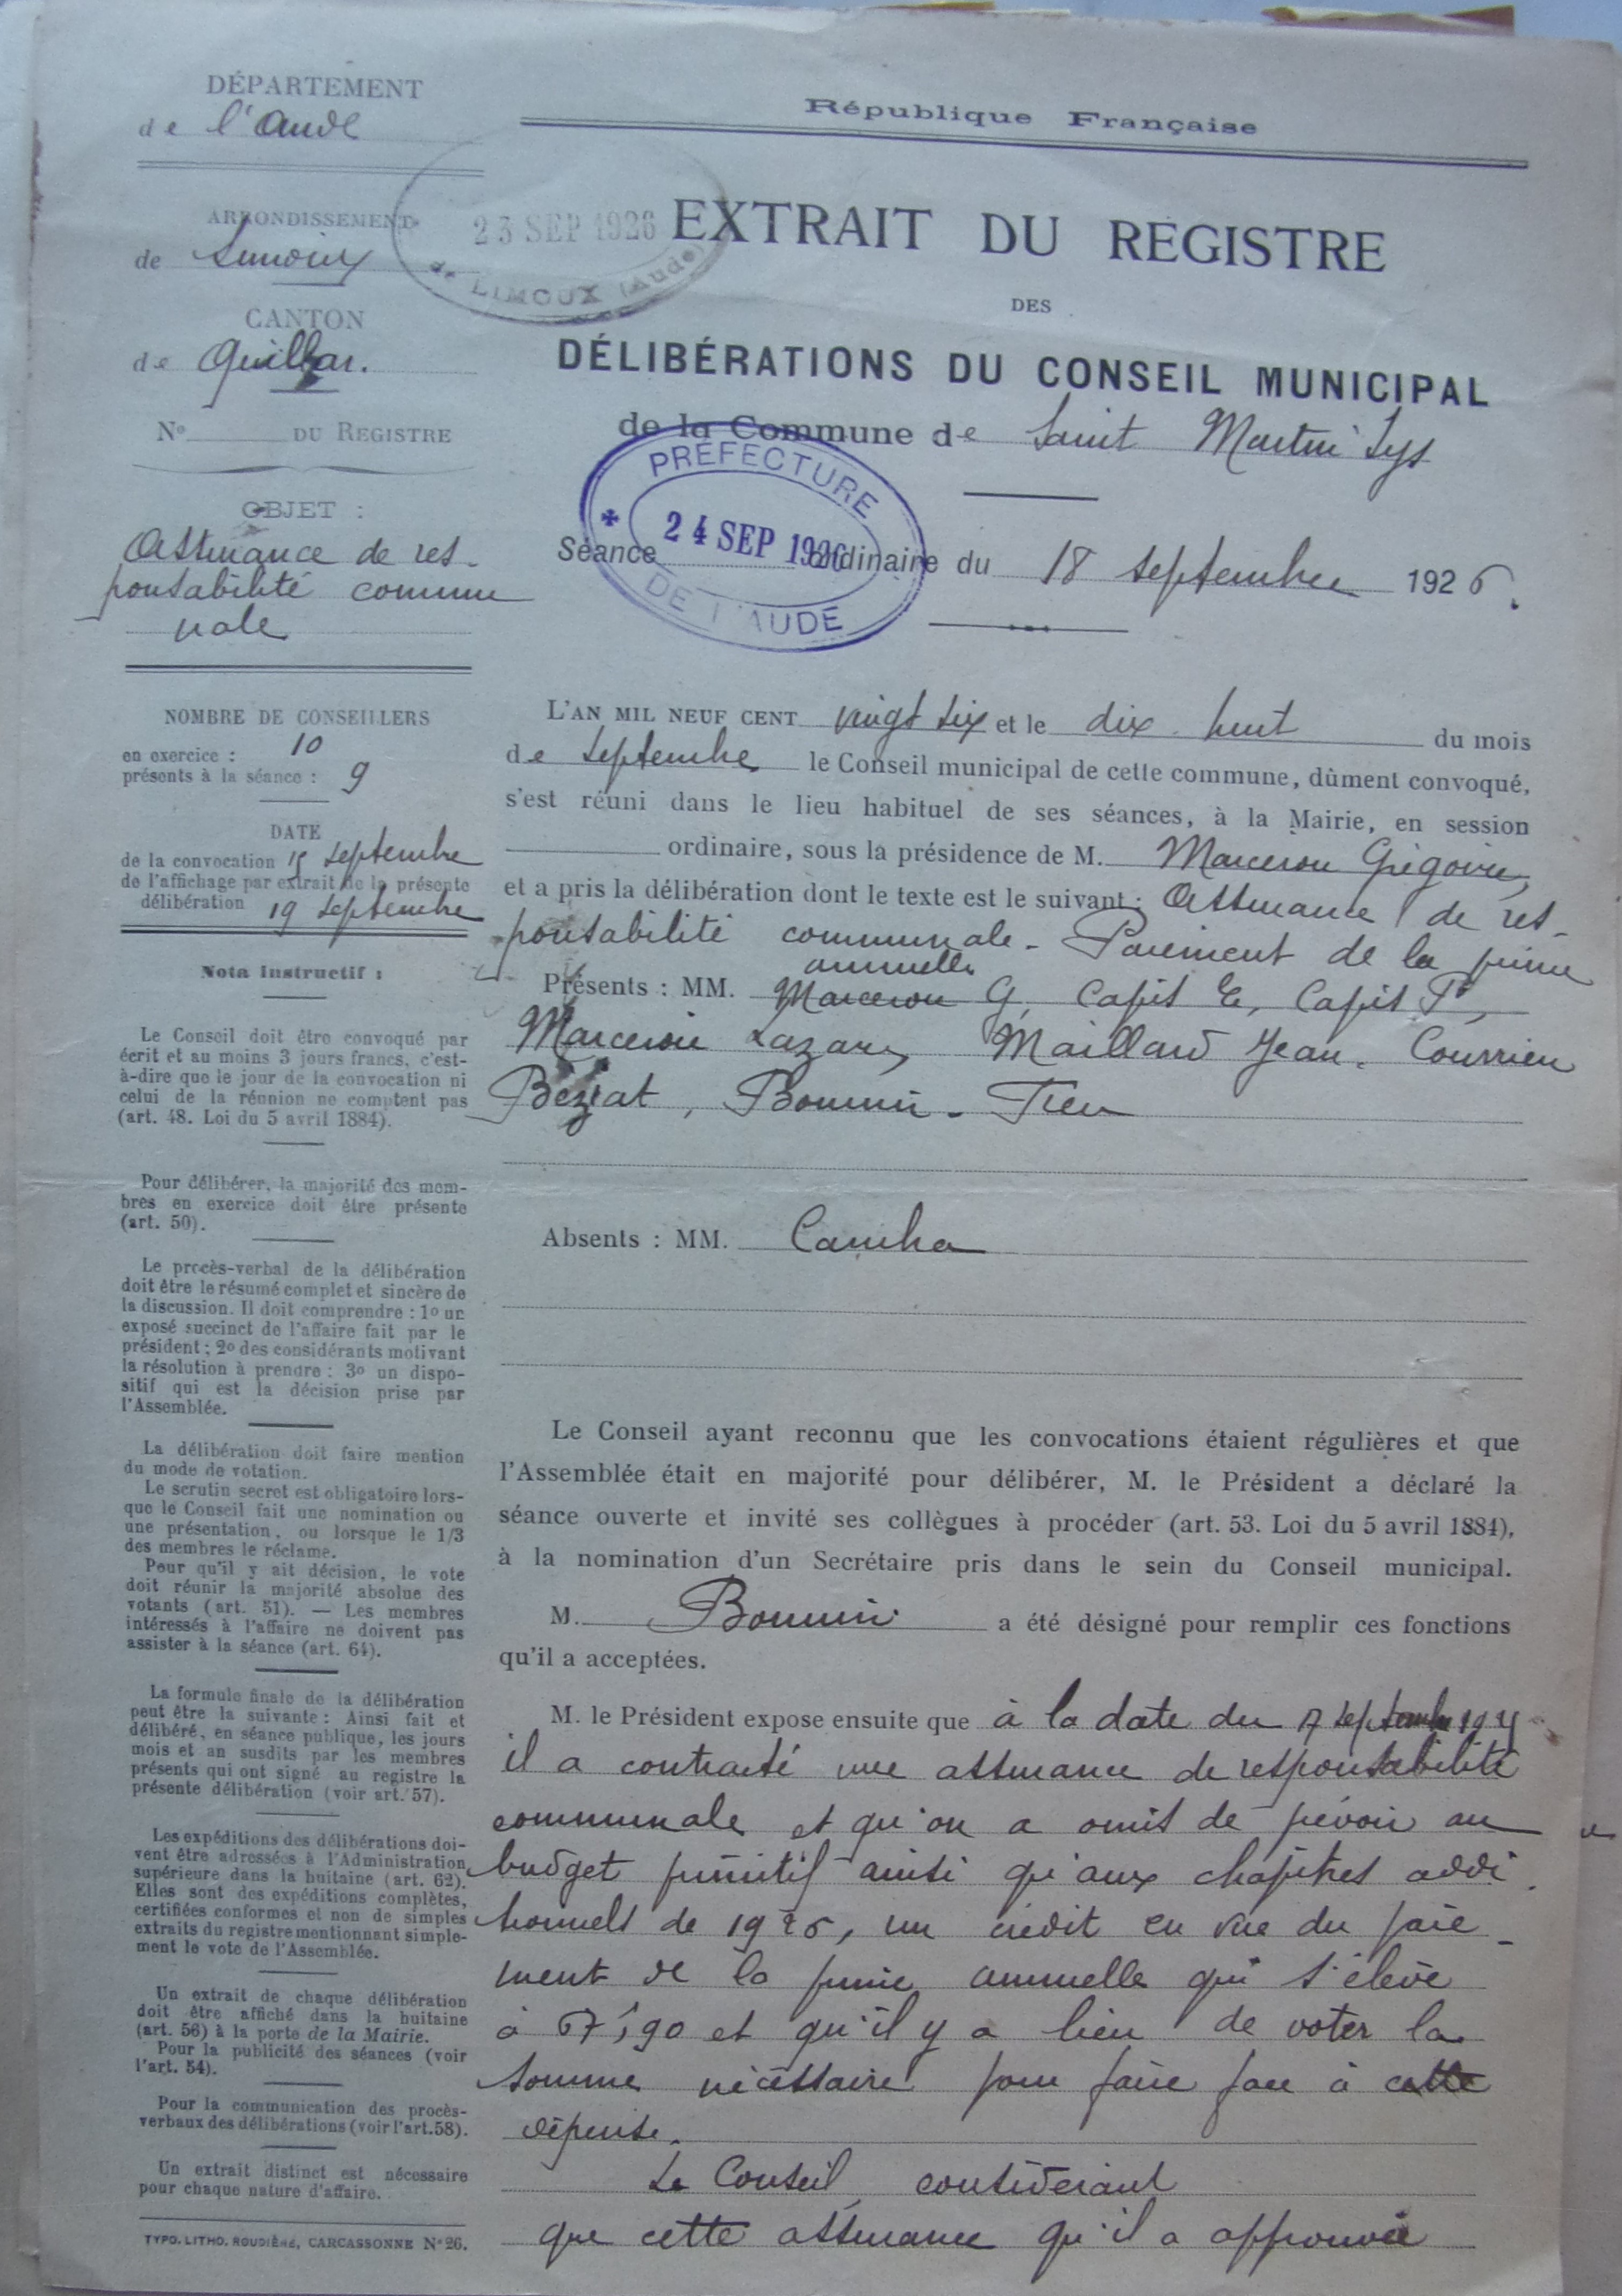 DÉPARTEMENT
de l'Aude
République Française
ARRONDISSEMENT
de Limoux
23 SEP 1926
de LIMOUX (Aude)
EXTRAIT DU REGISTRE
DES
CANTON
de Quillan.
DÉLIBÉRATIONS DU CONSEIL MUNICIPAL
N° DU REGISTRE
de la Commune de Saint Martin Lys
PRÉFECTURE
24 SEP 1926
DE L'AUDE
OBJET :
Assurance de res-
ponsabilité commu
nale
Séance ordinaire du 18 septembre 1926.
NOMBRE DE CONSEILLERS
en exercice : 10
présents à la séance : 9
DATE
de la convocation 15 septembre
de l'affichage par extrait de la présente
délibération 19 septembre
Nota instructif :
Le Conseil doit être convoqué par
écrit et au moins 3 jours francs, c'est-
à-dire que le jour de la convocation ni
celui de la réunion ne comptent pas
(art. 48. Loi du 5 avril 1884).
Pour délibérer, la majorité des mem-
bres en exercice doit être présente
(art. 50).
Le procès-verbal de la délibération
doit être le résumé complet et sincère de
la discussion. Il doit comprendre : 1° un
exposé succinct de l'affaire fait par le
président ; 2° des considérants motivant
la résolution à prendre : 3° un dispo-
sitif qui est la décision prise par
l'Assemblée.
La délibération doit faire mention
du mode de votation.
Le scrutin secret est obligatoire lors-
que le Conseil fait une nomination ou
une présentation, ou lorsque le 1/3
des membres le réclame.
Pour qu'il y ait décision, le vote
doit réunir la majorité absolue des
votants (art. 51). — Les membres
intéressés à l'affaire ne doivent pas
assister à la séance (art. 64).
La formule finale de la délibération
peut être la suivante : Ainsi fait et
délibéré, en séance publique, les jours
mois et an susdits par les membres
présents qui ont signé au registre la
présente délibération (voir art. 57).
Les expéditions des délibérations doi-
vent être adressées à l'Administration
supérieure dans la huitaine (art. 62).
Elles sont des expéditions complètes,
certifiées conformes et non de simples
extraits du registre mentionnant simple-
ment le vote de l'Assemblée.
Un extrait de chaque délibération
doit être affiché dans la huitaine
(art. 56) à la porte de la Mairie.
Pour la publicité des séances (voir
l'art. 54).
Pour la communication des procès-
verbaux des délibérations (voir l'art. 58).
Un extrait distinct est nécessaire
pour chaque nature d'affaire.
TYPO. LITHO. ROUDIÈRE, CARCASSONNE N° 26.
L'AN MIL NEUF CENT vingt six et le dix huit du mois
de septembre le Conseil municipal de cette commune, dûment convoqué,
s'est réuni dans le lieu habituel de ses séances, à la Mairie, en session
ordinaire, sous la présidence de M. Marcerou Grégoire,
et a pris la délibération dont le texte est le suivant : Assurance de res-
ponsabilité communale - Paiement de la prime
annuelle
Présents : MM. Marcerou G, Capis E, Capis P,
Marcerou Lazare, Maillard Jean. Courrieu
Béziat, Bonnin -
Absents : MM.
Le Conseil ayant reconnu que les convocations étaient régulières et que
l'Assemblée était en majorité pour délibérer, M. le Président a déclaré la
séance ouverte et invité ses collègues à procéder (art. 53. Loi du 5 avril 1884),
à la nomination d'un Secrétaire pris dans le sein du Conseil municipal.
M. Bonnin a été désigné pour remplir ces fonctions
qu'il a acceptées.
M. le Président expose ensuite que à la date du septembre
il a contracté une assurance de responsabilité
communale et qu'on a omis de prévoir au
budget primitif ainsi qu'aux chapitres addi
tionnels de 1926, un crédit en vue du paie-
ment de la prime annuelle qui s'élève
à 67f,90 et qu'il y a lieu de voter la
somme nécessaire pour faire face à cette
dépense.
Le Conseil, considérant
que cette assurance qu'il a approuvée